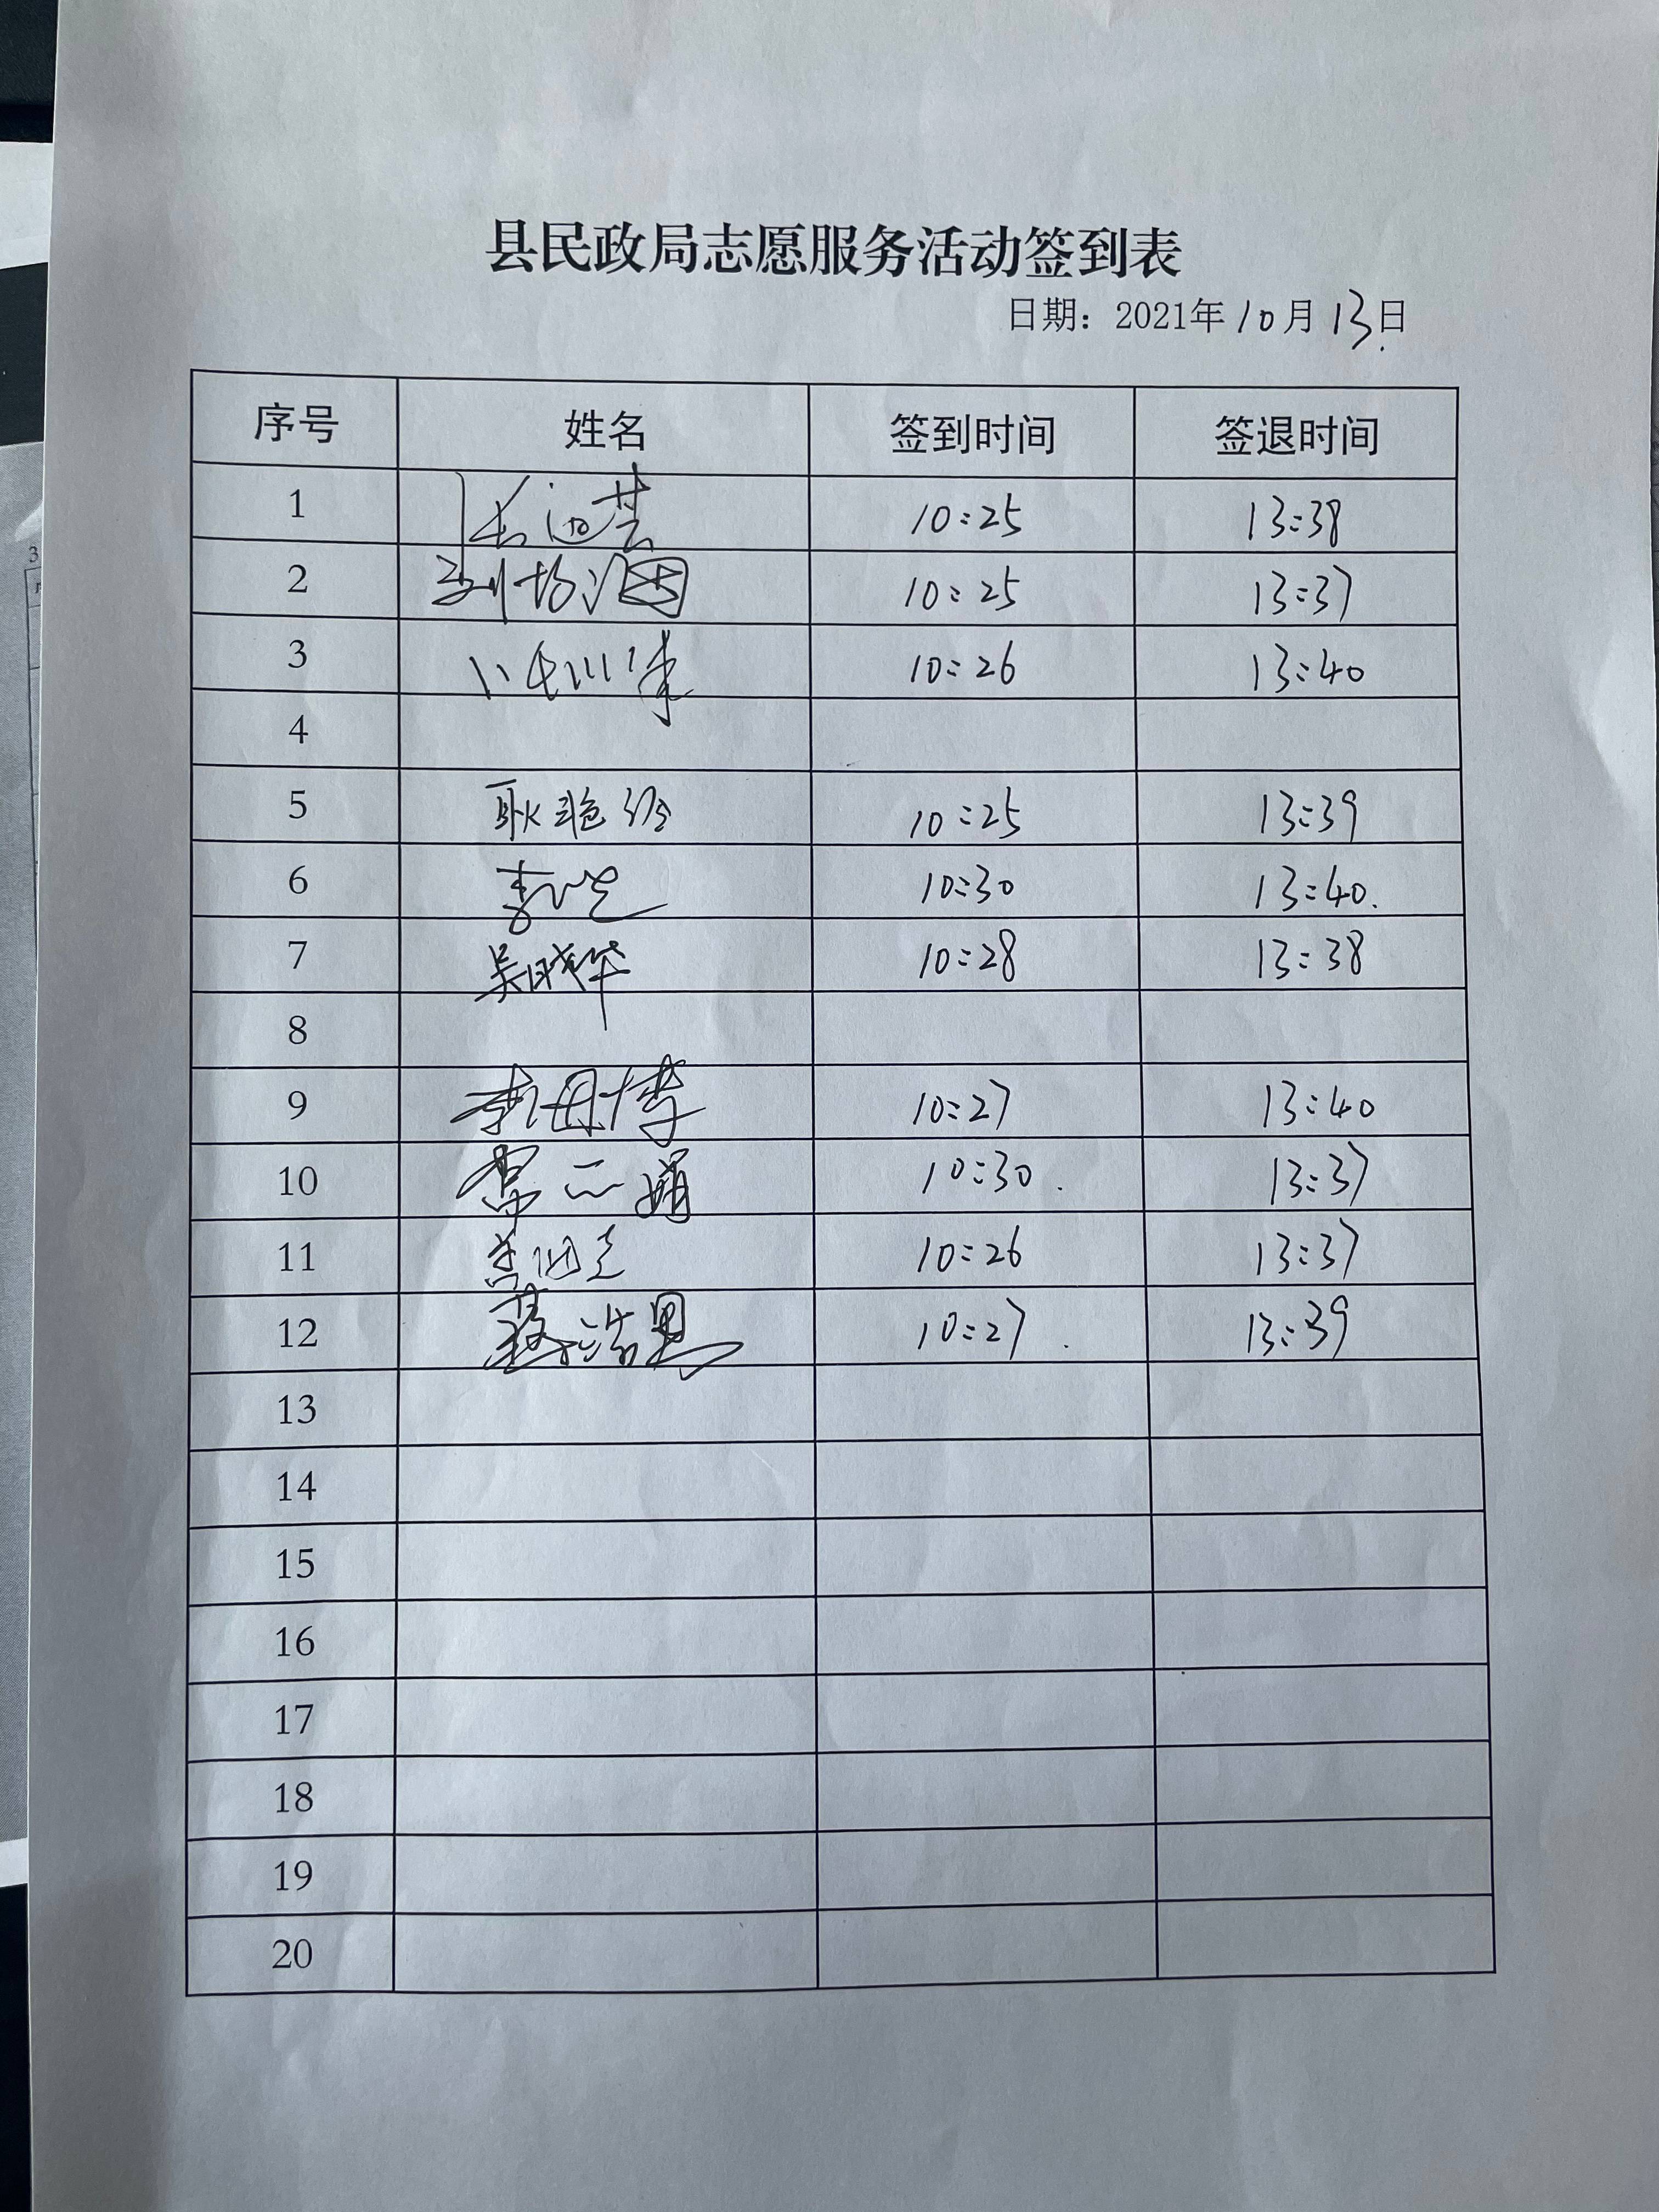 县民政局志愿服务活动签到表
日期：2021年10月13日
序号 姓名 签到时间 签退时间
1 10:25 13:38
2 10:25 13:37
3 10:26 13:40
4
5 耿艳玲 10:25 13:39
6 10:30 13:40.
7 吴晓华 10:28 13:38
8
9 10:27 13:40
10 常二娟 10:30. 13:37
11 10:26 13:37
12 10:27. 13:39
13
14
15
16
17
18
19
20